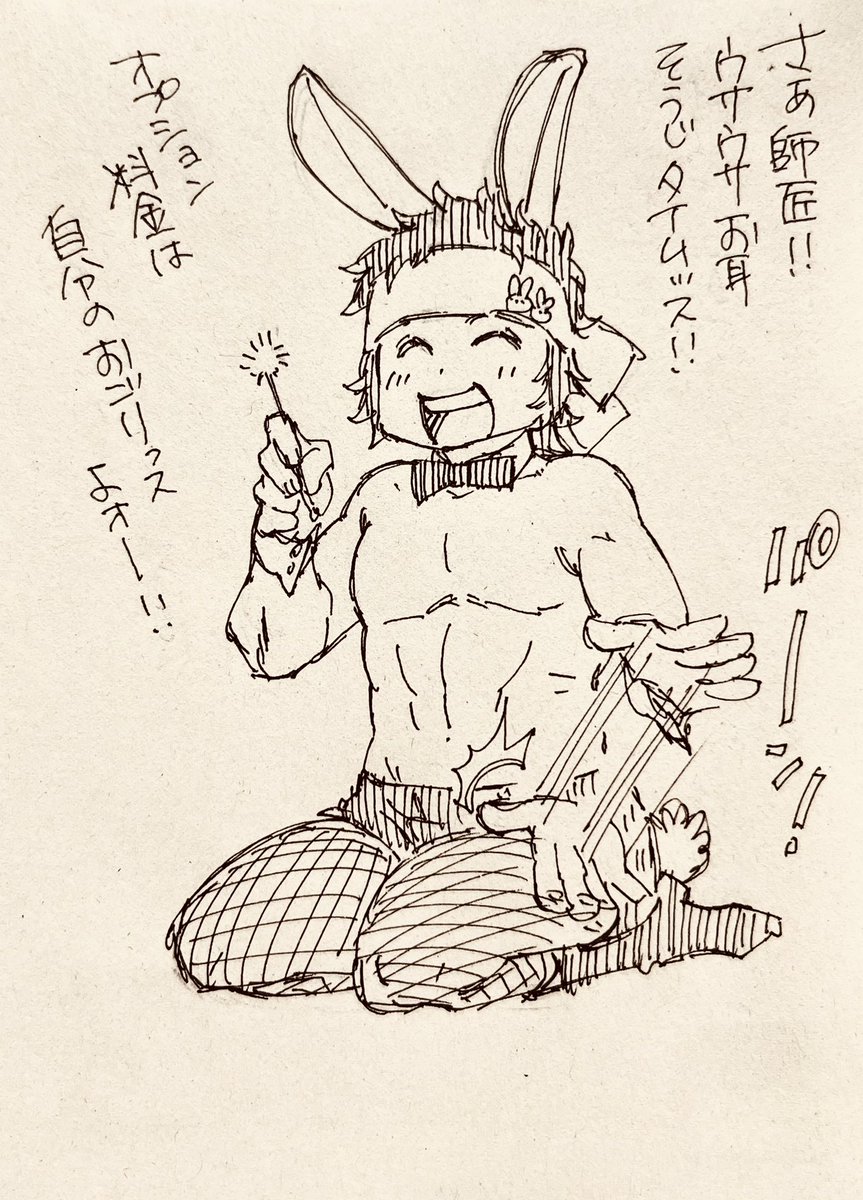 さぁ師匠!!
ウサウサお耳
そうじタイムッス!!
オプション
料金は
自分のおごりッス
よォー!!
パーンッ!